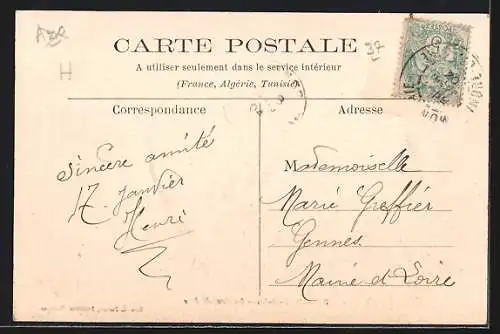 CARTE POSTALE
A utiliser seulement dans le service intérieur
(France, Algérie, Tunisie)
37
H
Correspondance
Adresse
Sincère amitié
17. Janvier
Henri
Mademoiselle
Marie Greffier
Gennes
Maine et Loire